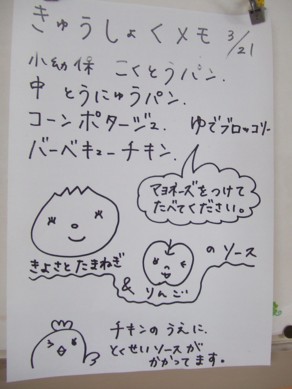 きゅうしょくメモ 3/21
小幼保 こくとうパン.
中 とうにゅうパン.
コーンポタージュ. ゆでブロッコリー
バーベキューチキン.
マヨネーズをつけて
たべてください。
きよさとたまねぎ
&
りんご
のソース
チキンのうえに、
とくせいソースが
かかってます。